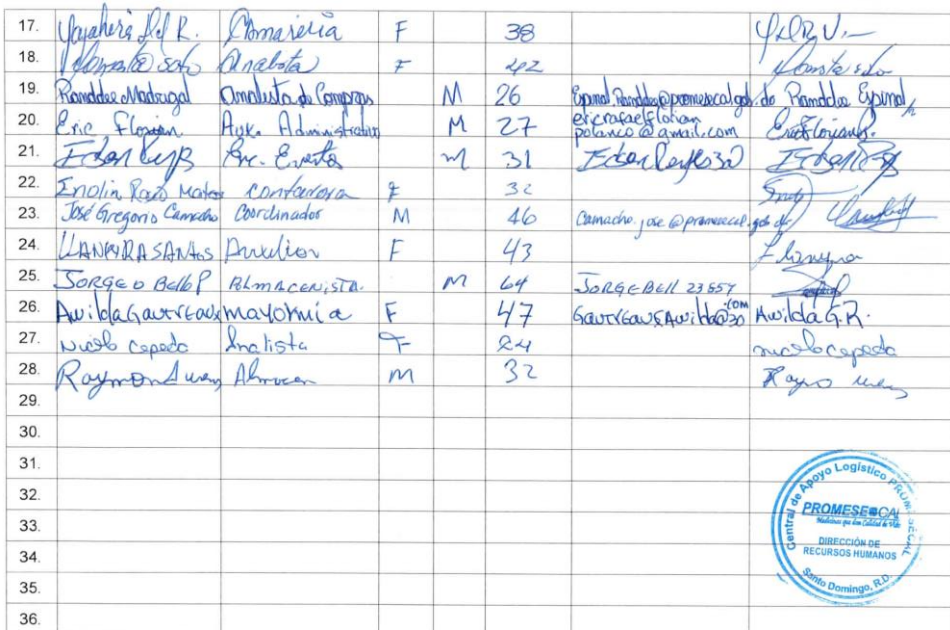 17. Yajahera Del R. Camareria F 38
18. Soto Analista F 42
19. Ramddee Madrigal Analista de Compras M 26 Espinal.Ramddee@promesecal.gob.do Ramddee Espinal
20. Eric Florian Aux. Administrativo M 27 ericrafaelflorian polanco@gmail.com Eric Florian P.
21. Enc. Evento M 31
22. Enolin Mateo Contadora F 32
23. José Gregorio Camacho Coordinador M 46 Camacho.jose@promesecal.gob.do
24. LLANYRA SANtos Auxiliar F 43 Llanyra
25. JORGE D Bello P ALMACENISTA. M 64 JORGEBELL 23557
26. Awilda Gautreaux mayormia F 47 GautreauxAwilda@30 .com Awilda G.R.
27. Nicole Cepeda Analista F 24 Nicole cepeda
28. Raymond Almacen M 32
29.
30.
31.
32.
33.
34.
35.
36.
Central de Apoyo Logístico PROMESECAL
PROMESE CAL
Medicinas que dan Calidad de Vida
DIRECCIÓN DE
RECURSOS HUMANOS
Santo Domingo, R.D.